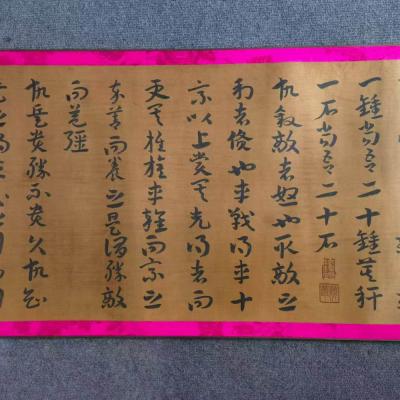 一鍾當吾二十鍾萁秆
一石當吾二十石
故殺敵者怒也取敵之
利者貨也車戰得車十
乘以上賞其先得者而
更其旌旗車雜而乘之
卒善而養之是謂勝敵
而益強
故兵貴勝不貴久故知